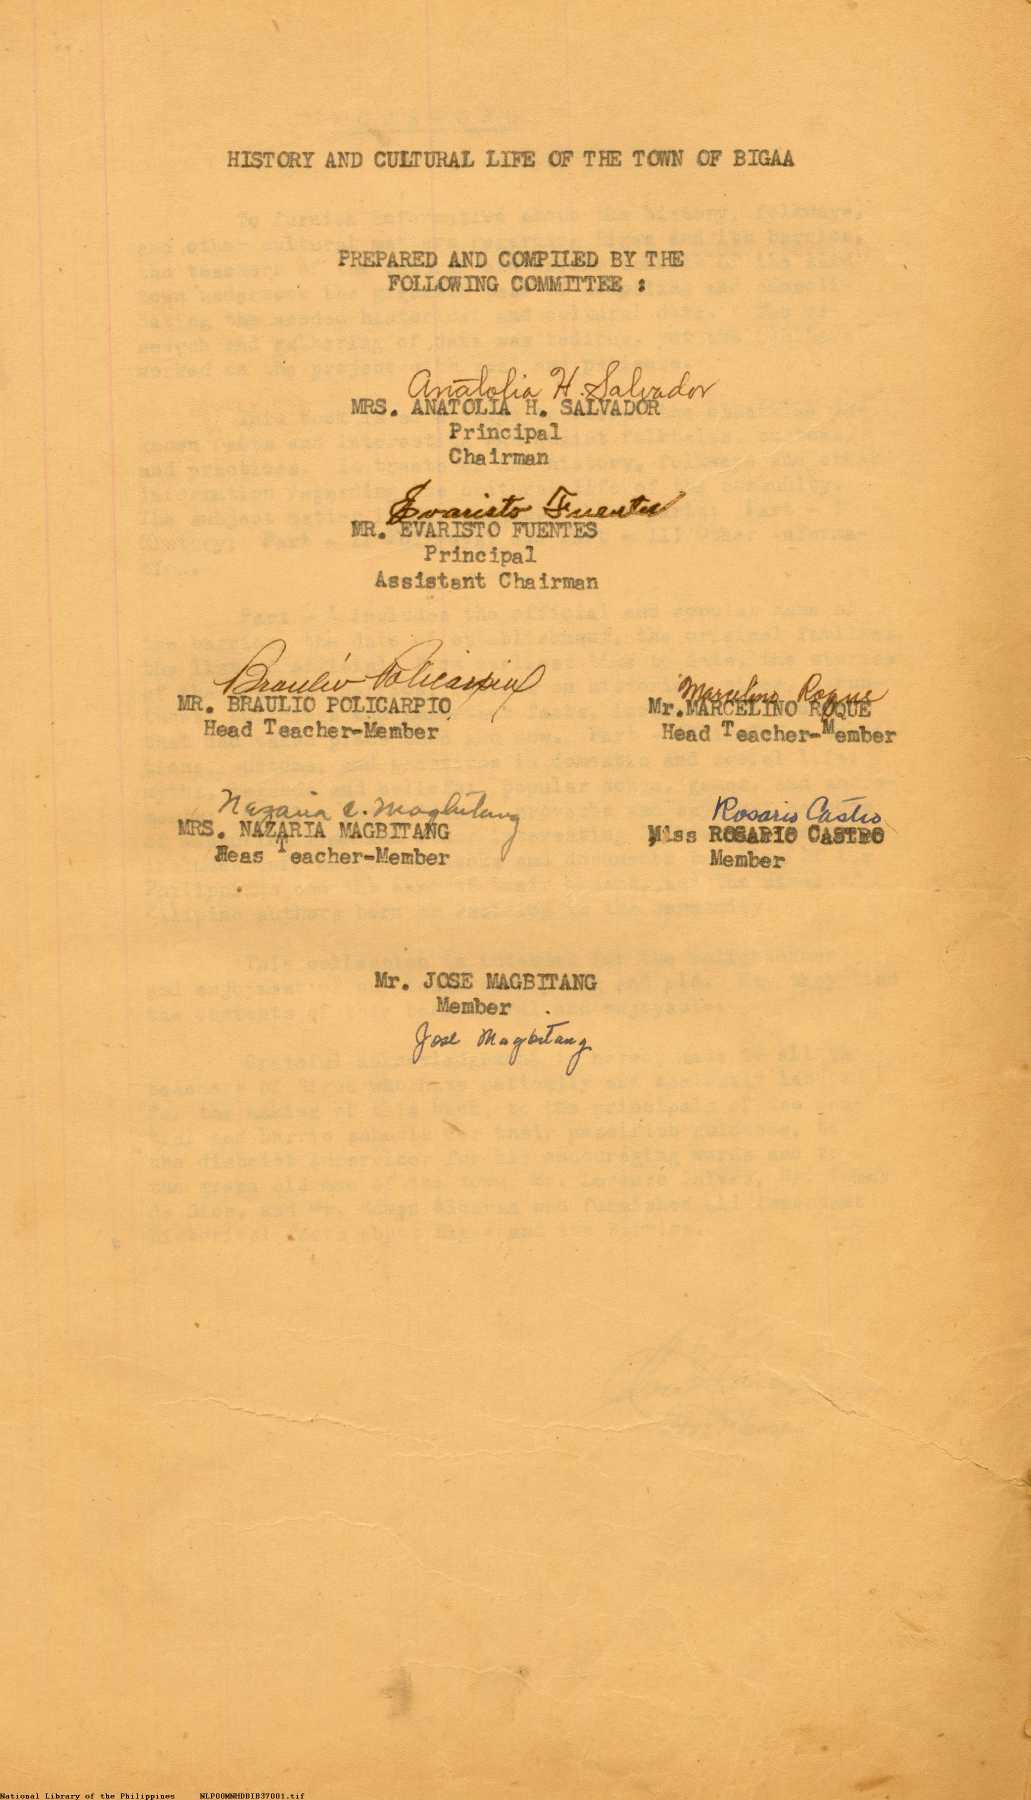 HISTORY AND CULTURAL LIFE OF THE TOWN OF BIGAA
PREPARED AND COMPILED BY THE
FOLLOWING COMMITTEE :
Anatolia H. Salvador
MRS. ANATOLIA H. SALVADOR
Principal
Chairman
Evaristo Fuentes
MR. EVARISTO FUENTES
Principal
Assistant Chairman
Braulio Policarpio
MR. BRAULIO POLICARPIO
Head Teacher-Member
Marcelino Roque
Mr.MARCELINO ROQUE
Head Teacher-Member
Nazaria C. Magbitang
MRS. NAZARIA MAGBITANG
Heas Teacher-Member
Rosario Castro
Miss ROSARIO CASTRO
Member
Mr. JOSE MAGBITANG
Member
Jose Magbitang
National Library of the Philippines NLPOOMNHDDIB37001.tif